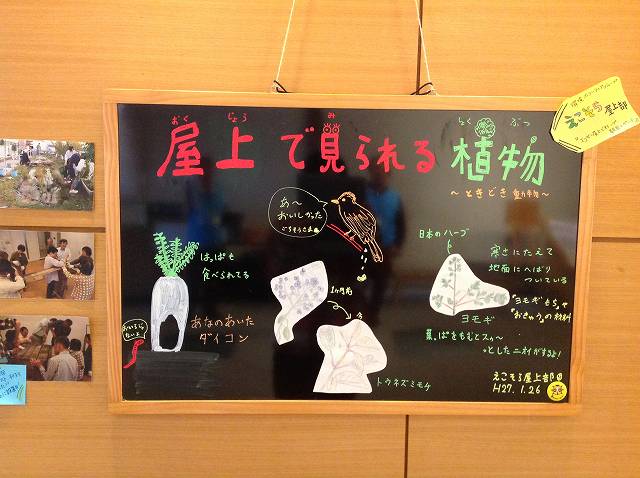 屋上で見られる植物
おく じょう み しょく ぶつ
〜ときどき動物〜
あ〜
おいしかった
ごちそうさま
はっぱも
食べられてる
あなのあいた
ダイコン
1ヶ月前
今
トウネズミモチ
日本のハーブ
ヨモギ
寒さにたえて
地面にへばり
ついている
"ヨモギもち"や
"おきゅう"の材料
葉っぱをもむとスゥ〜
っとしたニオイがするよ!
えこそら屋上部
H27.1.26
えこそら屋上部